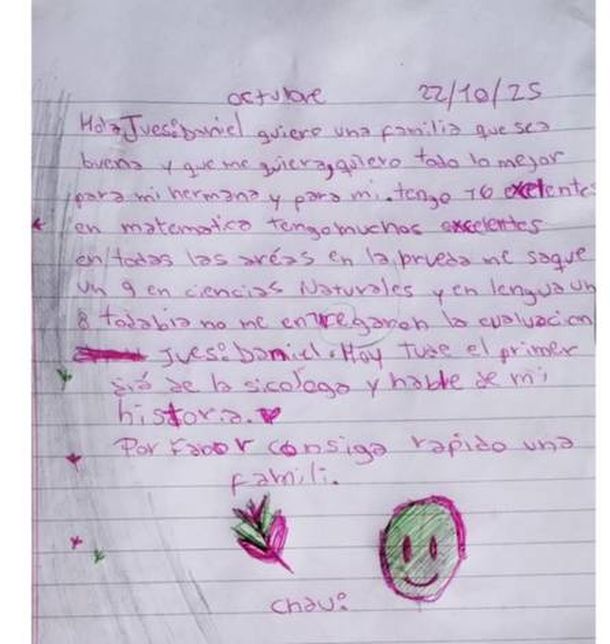 octubre 22/10/25
Hola Jues: Daniel quiere una familia que sea
buena y que me quiera, quiero todo lo mejor
para mi hermana y para mi. tengo 16 exelentes
en matematica tengo muchos excelentes
en todas las aréas en la prueda me saque
un 9 en ciencias Naturales y en lengua un
8 todabia no me entregaron la evaluacion
Jues: Daniel. Hoy tuve el primer
diá de la sicologa y hable de mi
historia.
Por Fabor consiga rapido una
famili.
chau: